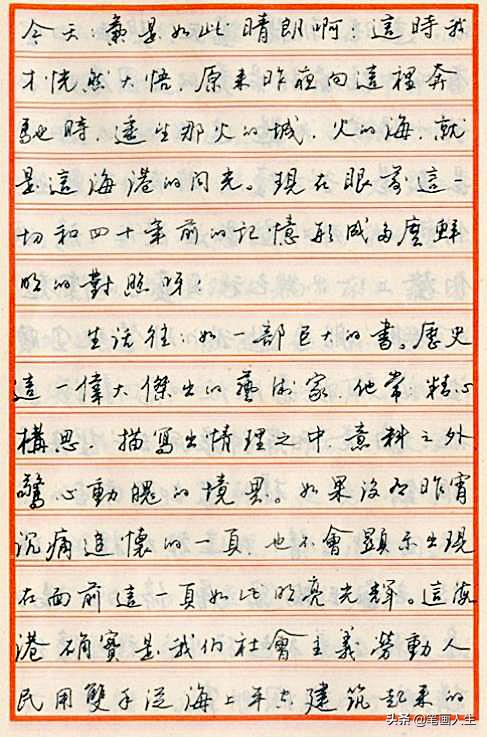 今天:氣是如此晴朗啊！這時我
才恍然大悟，原来昨夜向這裡奔
馳時，遙望那火的城，火的海，就
是這海港的闪光。現在眼前這一
切和四十年前的記憶形成多麼鮮
明的對照呀！
生活往:如一部巨大的書。歷史
這一偉大傑出的藝術家，他常:精心
構思，描寫出情理之中，意料之外，
驚心動魄的境界。如果没有昨宵
沉痛追懷的一頁，也不會顯示出現
在面前這一頁如此明亮光輝。這海
港确實是我们社會主義勞動人
民用雙手從海上平建筑起来的
头条 @笔画人生